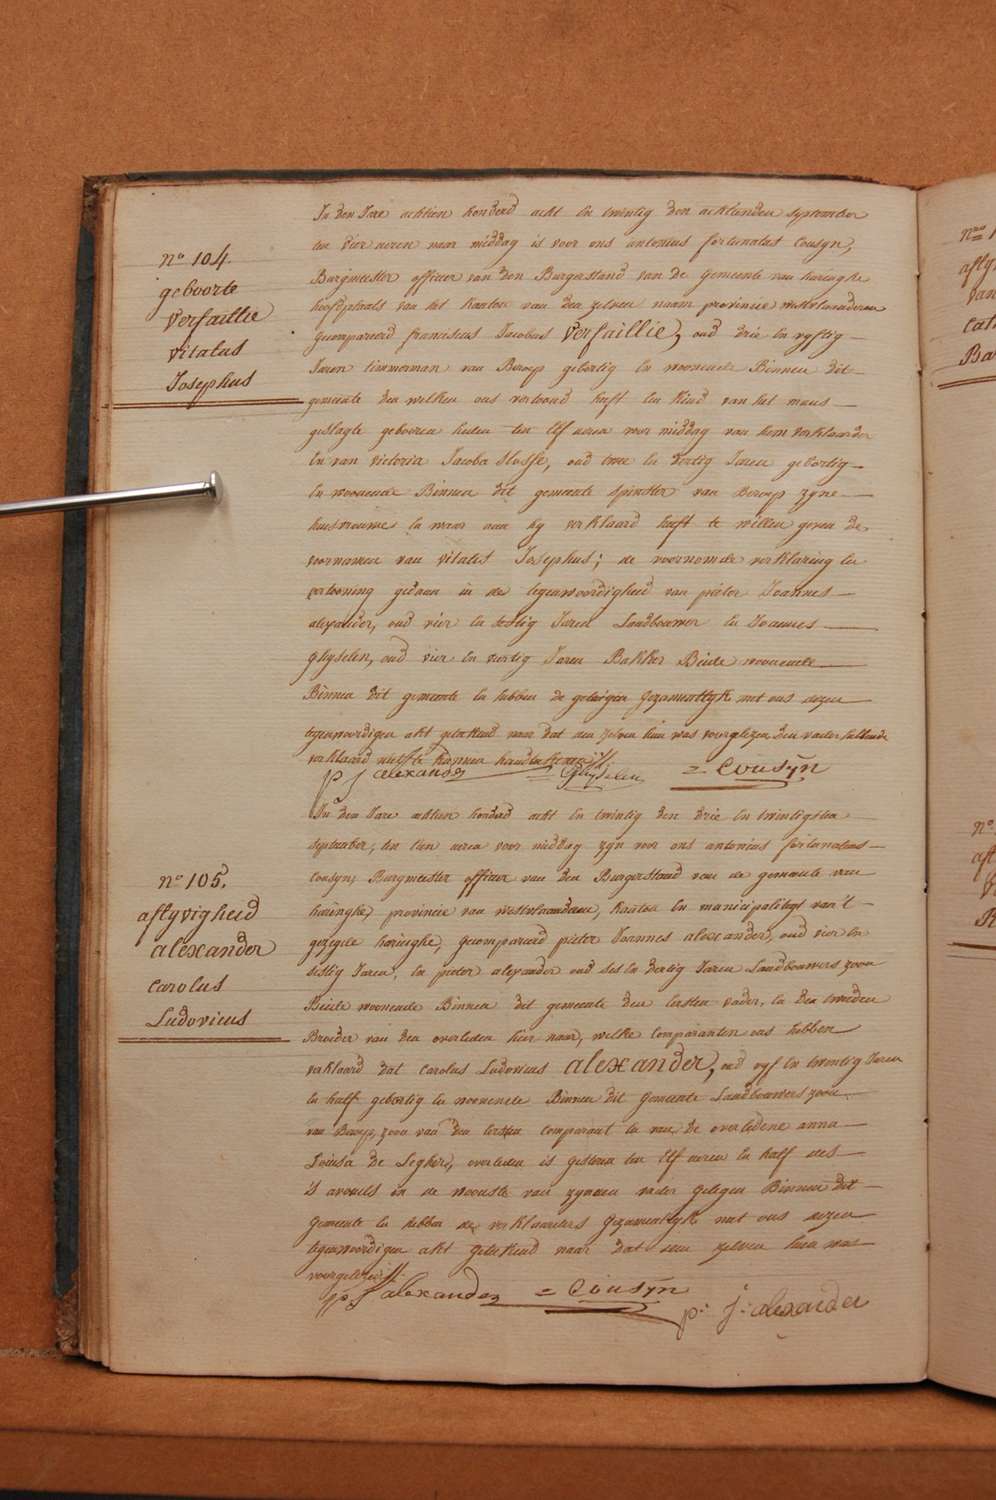 n° 104.
geboorte
Verfaillie
vitalus
Josephus
In den Jare achtien honderd acht en twintig den achtienden september
ten vier uren naer middag is voor ons antonius fortunatus Cousyn,
Burgmeester officier van den Burgerstand van de gemeente van haringhe
hoofdplaats van het kanton van den zelven naam provincie westvlaanderen
gecompareerd franciscus Jacobus Verfaillie, oud drie en vyftig
Jaren timmerman van Beroep geboortig en woonende Binnen dit
gemeente den welken ons vertoond heeft een kind van het mans
geslagte gebooren heden ten elf uren voor middag van hem verklaarder
en van victoria Jacoba oud twee en veertig Jaren geboortig
en woonende Binnen dit gemeente spinster van Beroep zyne
huisvrouwe en waar aan hy verklaard heeft te willen geven de
voornamen van vitalis Josephus; de voornomde verklaring en
vertooning gedaan in de tegenwoordigheid van pieter Joannes
alexander, oud vier en sestig Jaren Landbouwer en Joannes
Ghyselen, oud vier en veertig Jaren Bakker Beide woonende
Binnen dit gemeente en hebben de getuigen gezamentlyk met ons dezen
tegenwoordigen akt geteekend naar dat aen zelven hun was voorgelezen den vader hebbende
verklaard niet te kannen handteekenen
p j alexander = Ghyselen = Cousyn
In den Jare achtien honderd acht en twintig den drie en twintigsten
september, ten tien uren voor middag zyn voor ons antonius fortunatus
Cousyn, Burgmeester officier van den Burgerstand van de gemeente van
haringhe, provincie van westvlaanderen, kanton en municipaliteyt van 't
gezegde haringhe, gecompareerd pieter Joannes alexander, oud vier en
sestig Jaren, en pieter alexander oud ses en dertig Jaren Landbouwers zoon
Beide woonende Binnen dit gemeente den eersten vader, en den tweeden
Broeder van den overleden hier naar, welke comparanten ons hebben
verklaard dat carolus Ludovicus alexander, oud vyf en twintig Jaren
en half geboortig en woonende Binnen dit gemeente Landbouwers zoon
van Beroep, zoon van den eersten comparant en van de overledene anna
Louisa de Legher, overleden is gisteren ten elf uren en half des
's avonds in de woonste van zynen vader gelegen Binnen dit
gemeente en hebben de verklaarders gezamentlyk met ons dezen
tegenwoordigen akt geteekend naar dat aen zelven hun was
voorgelezen
n° 105.
aflyvigheid
alexander
carolus
Ludovicus
p j alexander = Cousyn
p: j: alexander